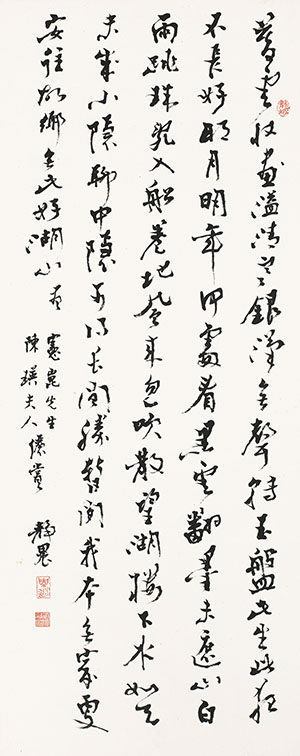 暮雲收盡溢清寒銀漢無聲轉玉盤此生此夜
不長好明月明年何處看黑雲翻墨未遮山白
雨跳珠亂入船卷地風來忽吹散望湖樓下水如天
未成小隱聊中隱可得長閒勝暫閒我本無家更
安往故鄉無此好湖山
憲崑先生
陳瑛夫人儷賞
靜農